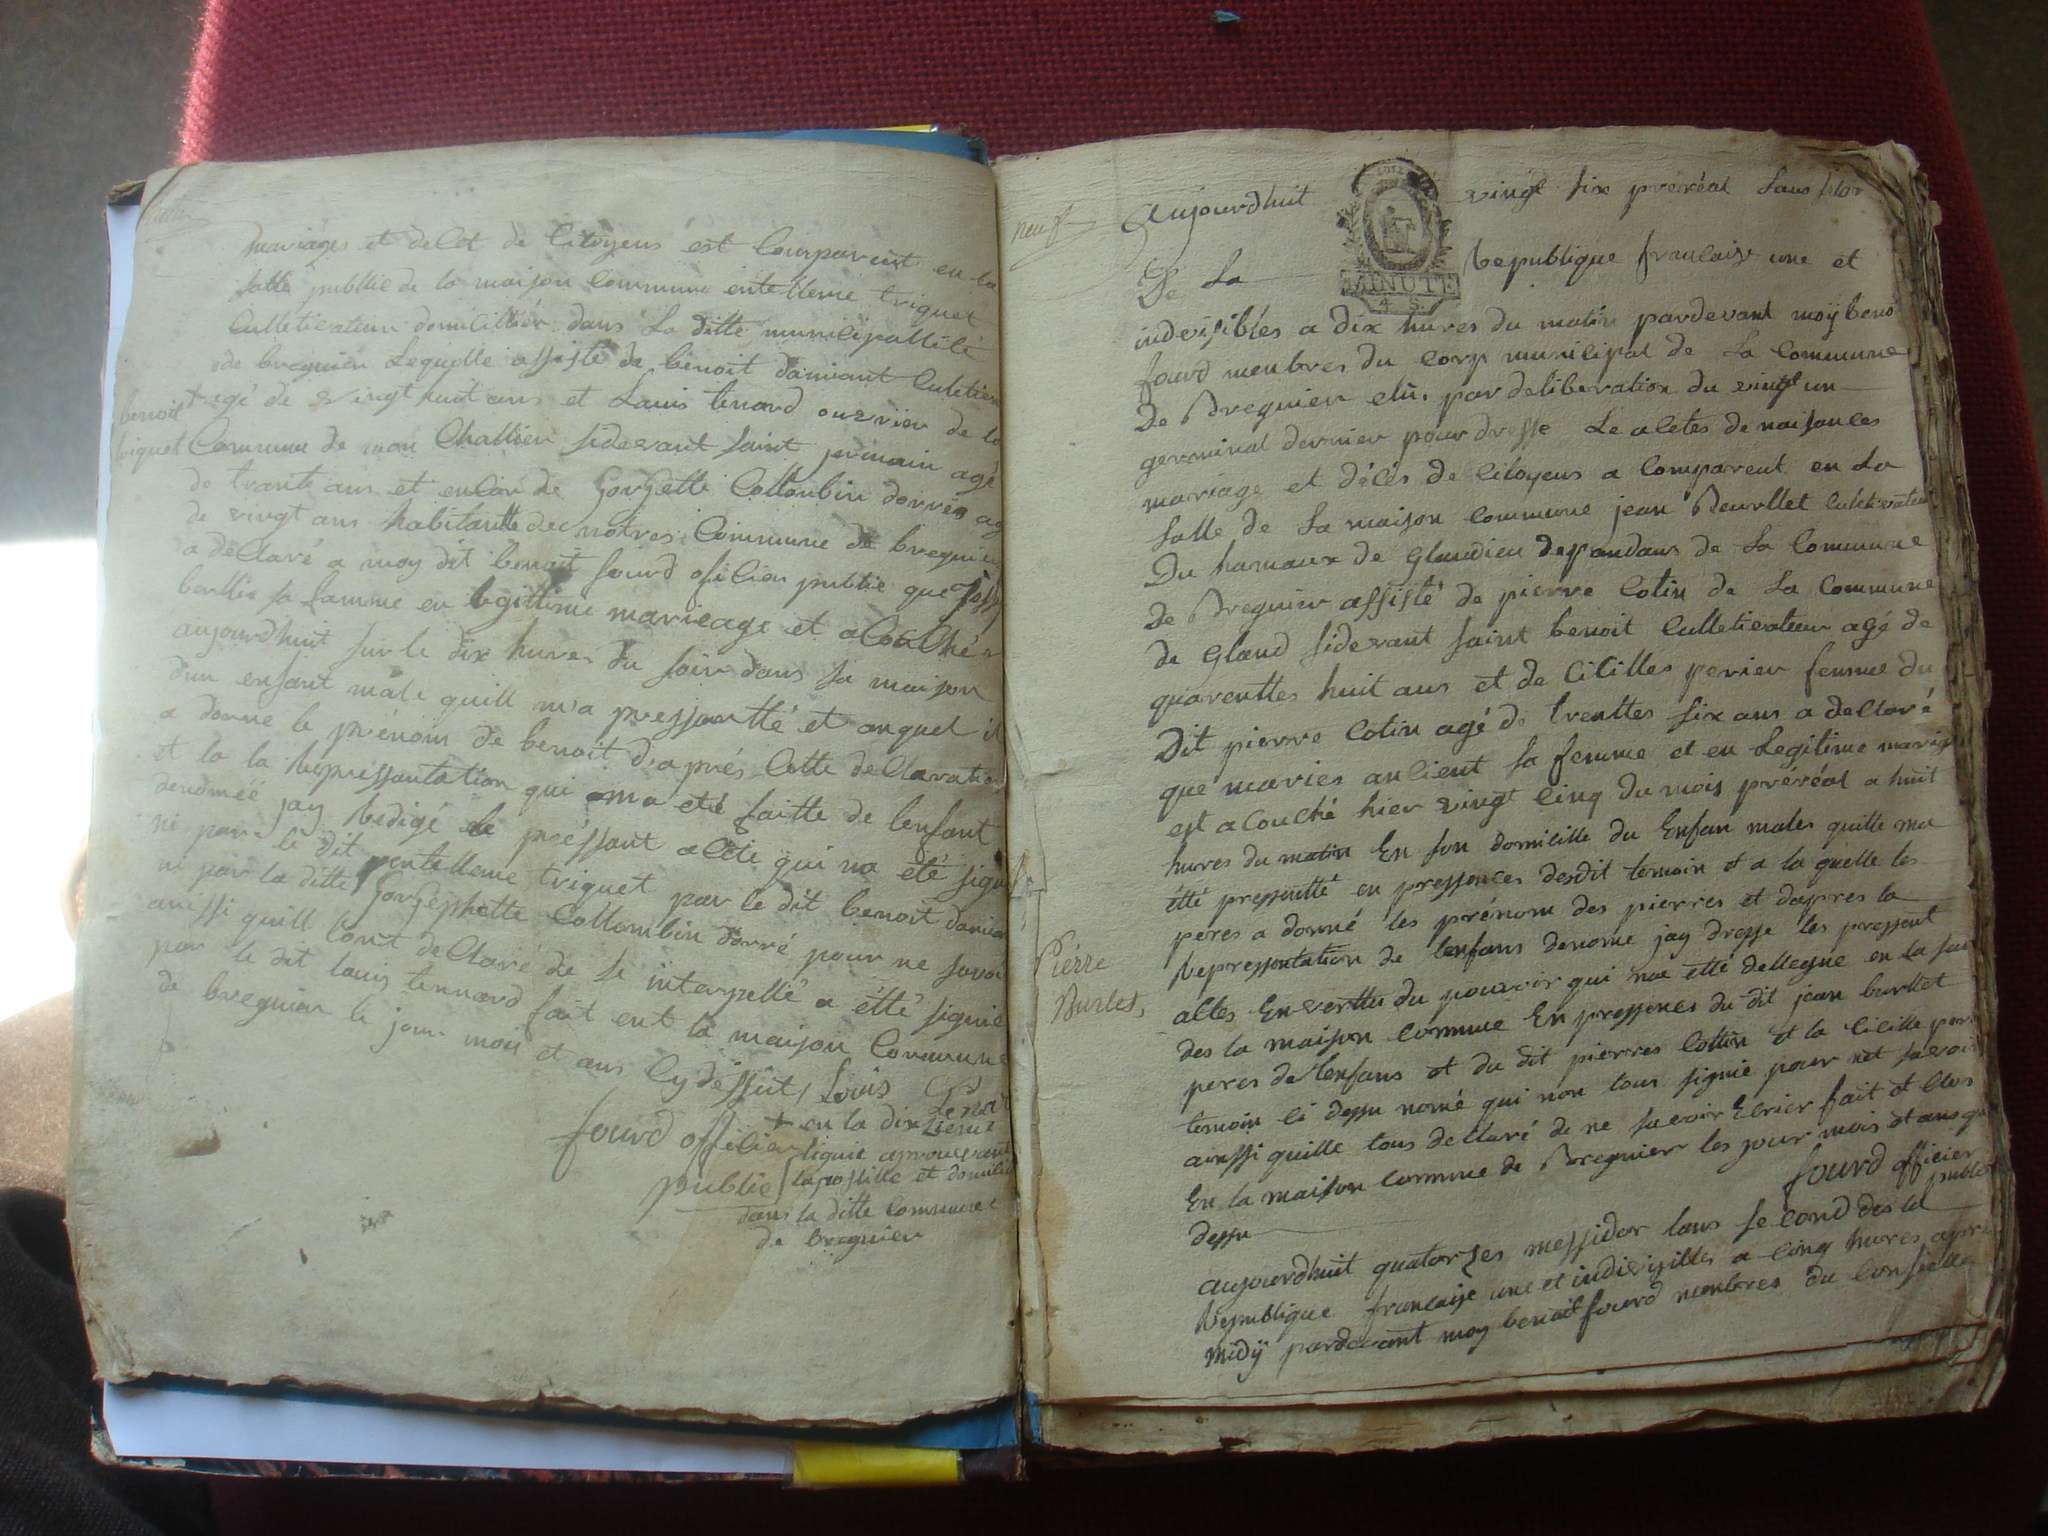 mariages et decet de Citoyens est Comparent en la
salle publicde de la maison Commune entelleme triguet
Culletivateur domicilliér dans La ditte municipallité
de bregnier Lequelle assisté de benoit damiant Culetiv
benoit triguet
+ agé de vingt huit ans et Louis tenard ouvrier de la
Commune de mon Challier sidevant saint primain agé
de trante ans et encor de Gorgette Collonbin dorrés ag
de vingt ans habitantte de notres Commune de bregnier
a déClaré a moy dit benoit fourd oficier publie que
berllie sa famme en legittime marieage et acouChé
aujourdhuit sur le dix hures du soir dans sa maison
dun enfant male quill m'a pressantté et auquel il
a donne le prénom de benoit d'aprés Cette deClaration
et la la Représsantation qui ma eté faitte de lenfant
denomée jay Redigé le préssant acte qui na été signé
ni par le dit entelleme triguet par le dit benoit damian
ni par la ditte Gorgephette Collombin dorré pour ne savoi
aussi quill lont deClaré de se interpellé a étté signie
par le dit louis tennard fait ent la maison Commune
de bregnier le jour mois et ans Cy dessüt, Loüis Tenar
fourd officier publie
+ en la dixieme
lignie aprouvant
lapostille et domicile
dans la ditte Commune
de bregnier
neuf
Aujourdhuit vingt six préréal Lans
De La Republique francaise une et
MINUTE
4. S.
indevisiblés a dix hures du matin pardevant moÿ beno
fourd menbres du Corp municipal de La Commune
De Bregnier elü. par deliberation du vingt un
germinal dernier pour dresse Le acletes de naisances
mariage et décés de Citoyens a Comparent en La
salle de La maison Commune jean Beurllet Culetivateur
Du hamaux de glandieu dependans de La Commune
de Bregnier assisté de pierre Cotin de La Commune
de Gland sidevant saint benoit Culletivateur agé de
quarenttes huit ans et de Cicilles perier femme du
Dit pierre Cotin agé de trenttes six ans a declaré
que maries ancient sa femme et en Legitime mariag
est acouché hier vingt Cinq du mois préréal a huit
hures du matin En son domicille du Enfan males quille ma
étté pressentté en pressences desdit temoin et a la quelle les
peres a donné les prénom des pierres et dapres la
Pierre
Burlet,
Repressentation de lenfans denome jay dresse les pressent
actes En verttu du pouvoir qui ma etté dellegue en la sall
des la maison commune En pressences du dit jean burllet
peres de lenfans et du dit pierres Cottin et la Cicille peri
temoin Ci dessu nomé qui non tous signie pour net savoir
ainssi quille tous declaré de ne savoir Ecrier fait et clos
En la maison commune de Bregnier les jour mois et ans que
dessu
fourd officier public
aujourdhuit quatorzes messidor lans second des la
Republique francaise une et indivisiblles a cinq hures apré
midÿ pardevant moy benoit fourd menbres du Conseille